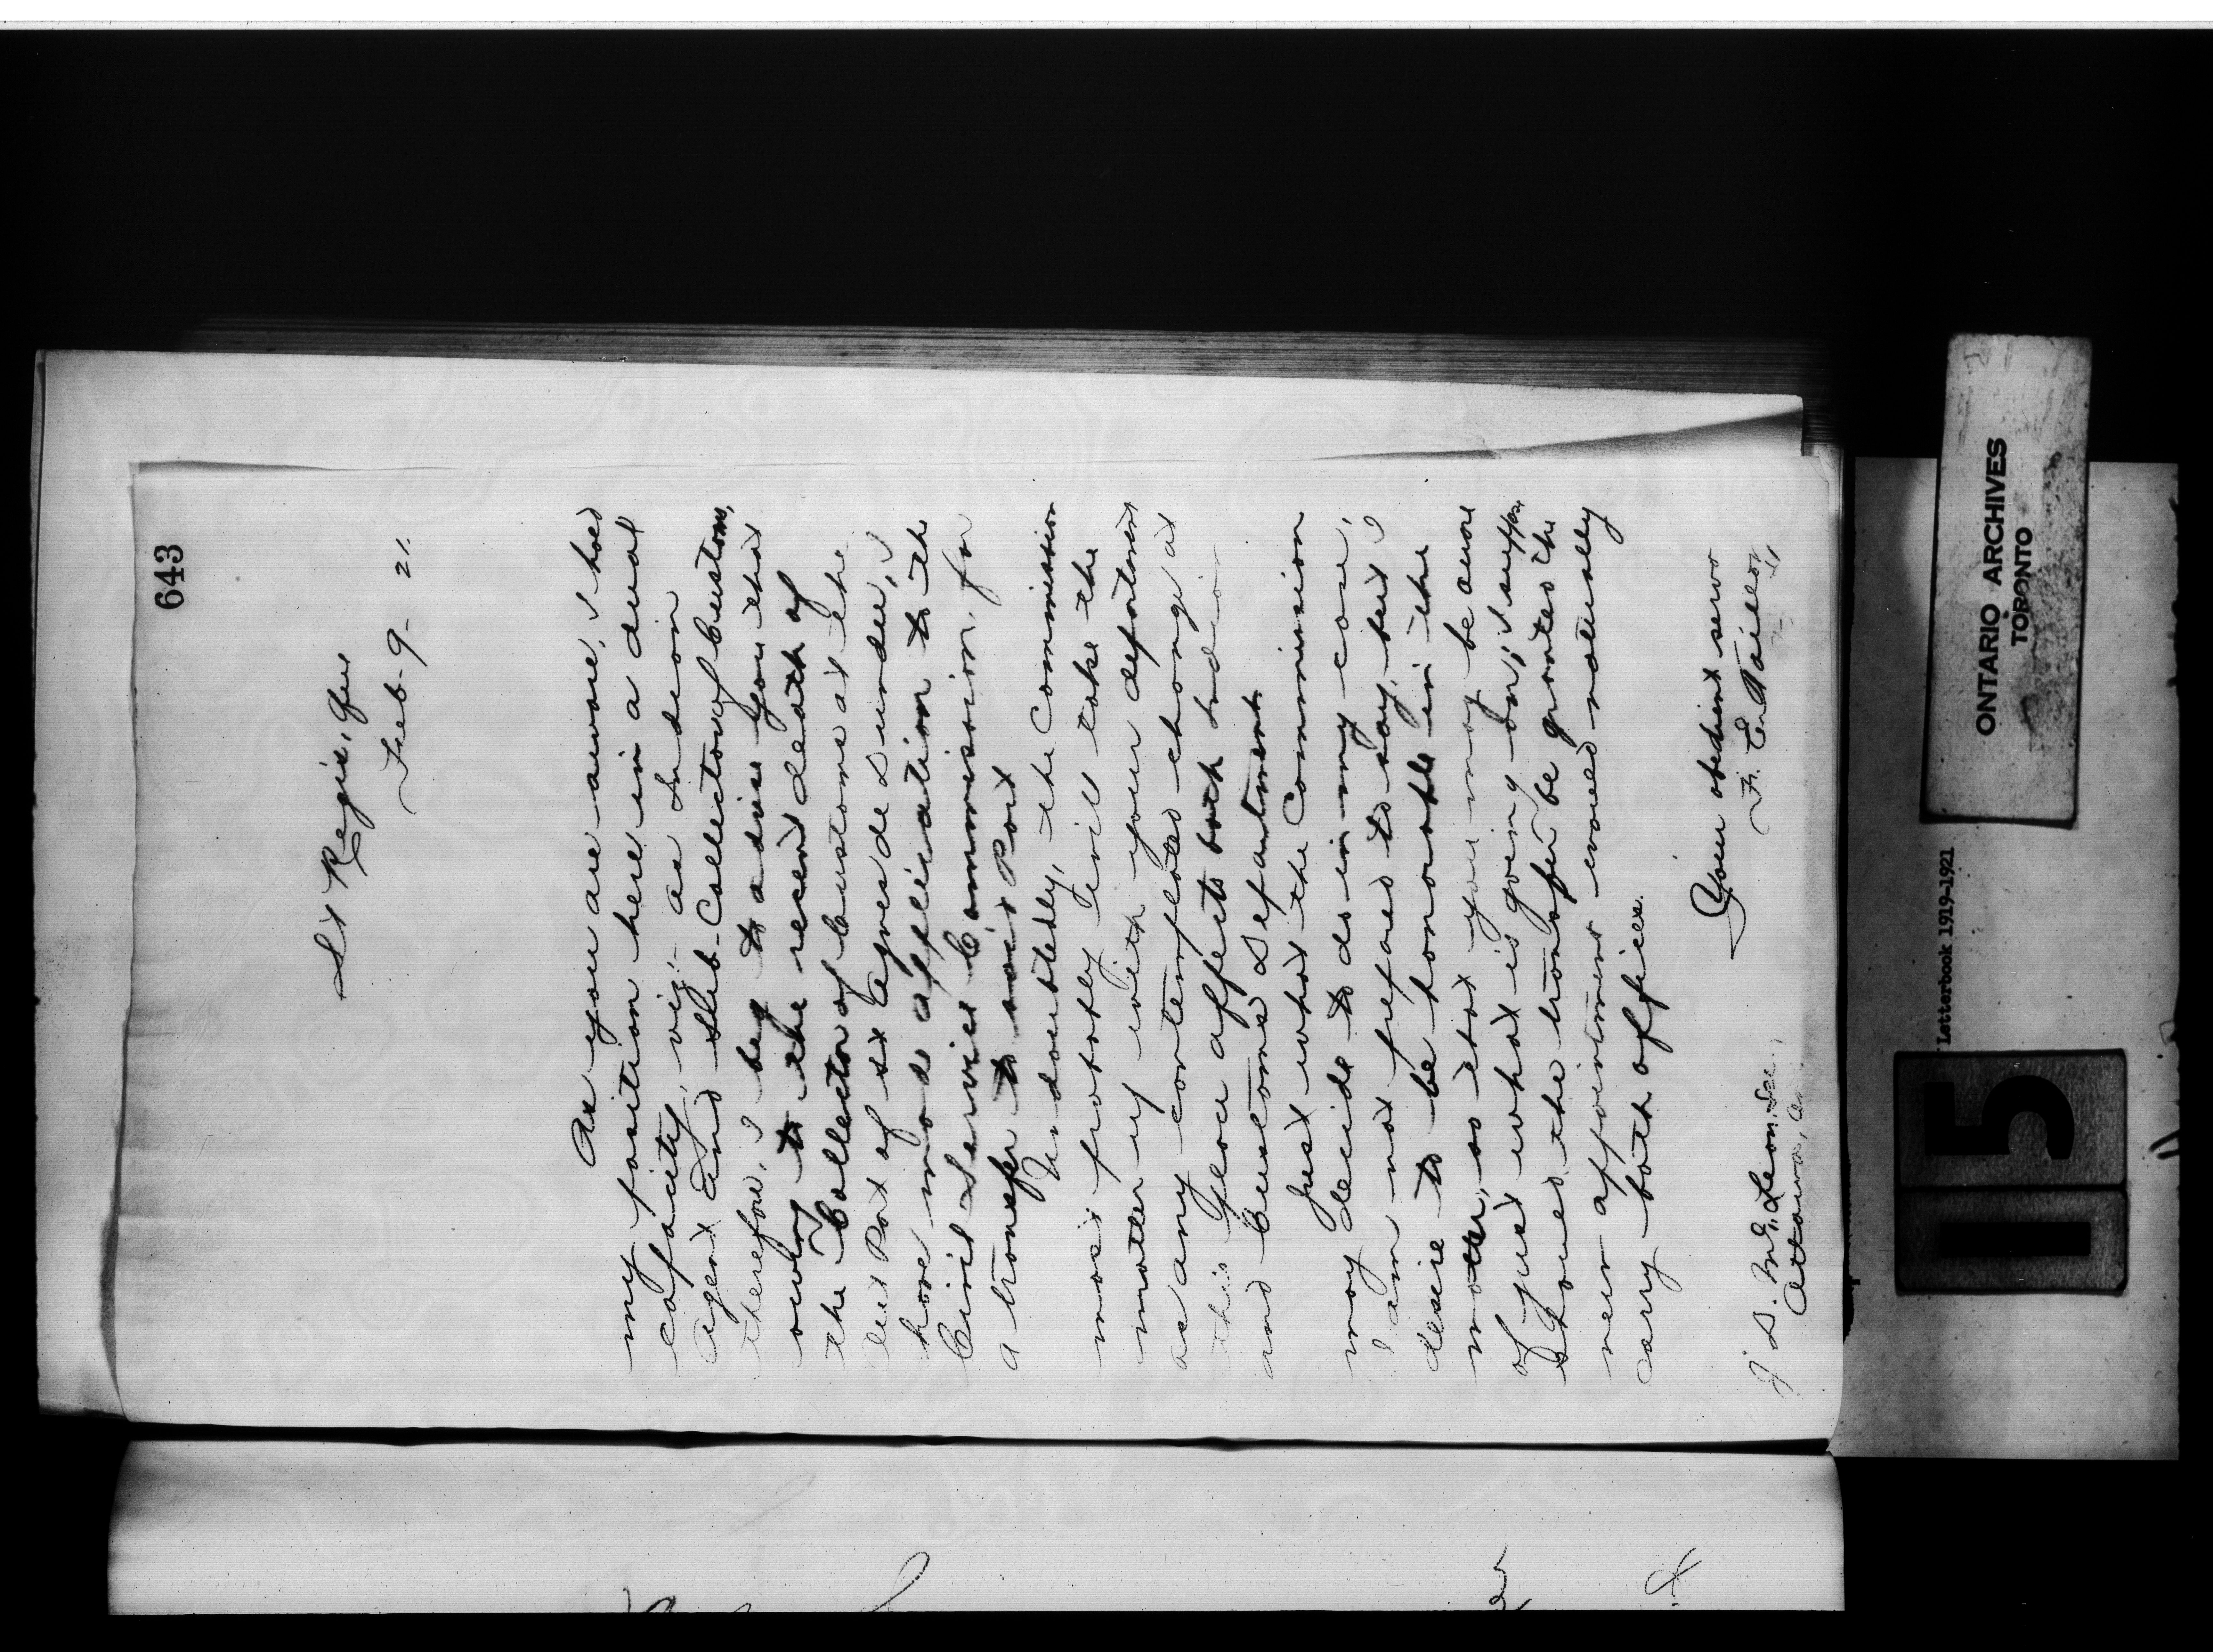 643
St Regis, Que
Feb. 9 - 21.
As you are aware, I hold
my position here in a dual
capacity, viz:- as Indian
Agent and Sub-Collector of Customs,
therefore, I beg to advise you that
owing to the recent death of
the Collector of Customs at the
Out Port of St Agnes de Dundee, I
have made application to the
Civil Service Commission, for
a transfer to said Port
Undoubtedly, the Commission
most probably will take the
matter up with your department
as any contemplated change at
this place affects both Indian
and Customs Departments.
Just what the Commission
may decide to do in my case,
I am not prepared to say, but I
desire to be honorable in the
matter, so that you may be aware
of just what is going on; I suppose
should the transfer be granted the
new appointment would naturally
carry both offices.
Your obedient serv
F. E. Taillon
J D. McLean, Sec.,
Ottawa, O.
ONTARIO ARCHIVES
TORONTO
Letterbook 1919-1921
15